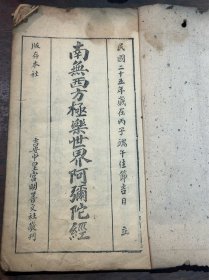 民國二十五年歲在丙子端午佳節吉日 立
南無西方極樂世界阿彌陀經
版存本社